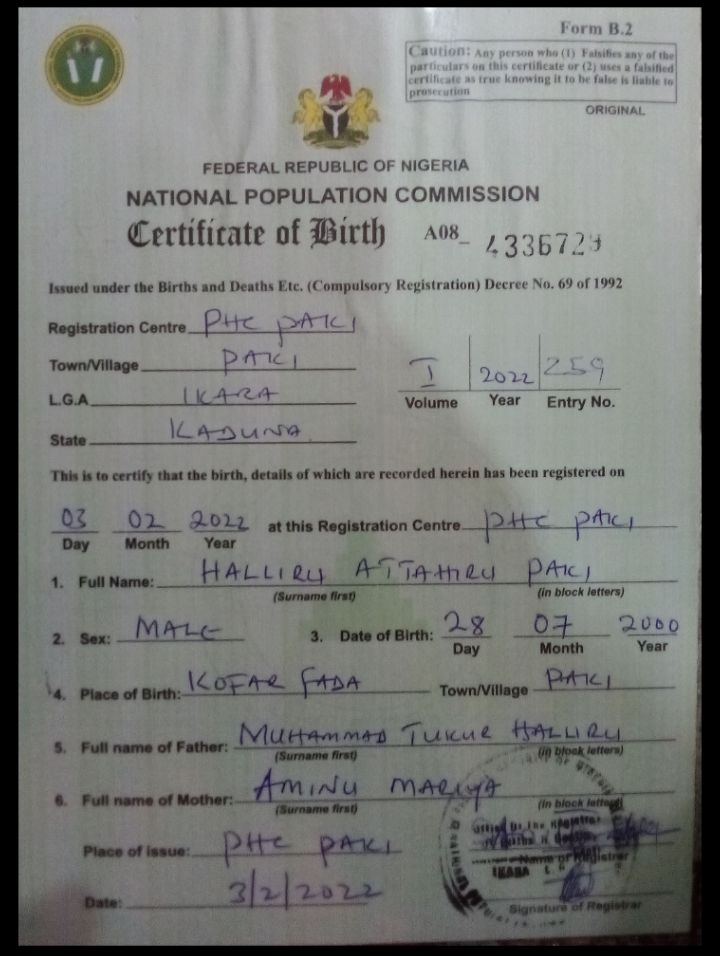 Form B.2
Caution: Any person who (1) Falsifies any of the
particulars on this certificate or (2) uses a falsified
certificate as true knowing it to be false is liable to
prosecution
ORIGINAL
FEDERAL REPUBLIC OF NIGERIA
NATIONAL POPULATION COMMISSION
Certificate of Birth A08_ 4336729
Issued under the Births and Deaths Etc. (Compulsory Registration) Decree No. 69 of 1992
Registration Centre PHC PAKI
Town/Village PAKI
L.G.A IKARA
State KADUNA
I 2022 259
Volume Year Entry No.
This is to certify that the birth, details of which are recorded herein has been registered on
03 02 2022 at this Registration Centre PHC PAKI
Day Month Year
1. Full Name: HALLIRU ATTAHIRU PAKI
(Surname first) (in block letters)
2. Sex: MALE 3. Date of Birth: 28 07 2000
Day Month Year
4. Place of Birth: KOFAR FADA Town/Village PAKI
5. Full name of Father: MUHAMMAD TUKUR HALLIRU
(Surname first) (in block letters)
6. Full name of Mother: AMINU MARIYA
(Surname first) (in block letters)
Place of issue: PHC PAKI
Name of Registrar
IKARA
Date: 3/2/2022
Signature of Registrar